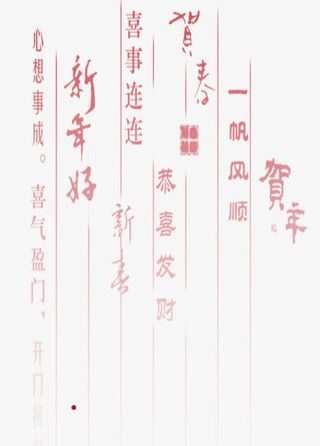 心想事成。喜气盈门，开门接
新年好
喜事连连
新春
恭喜发财
贺春
一帆风顺
賀年